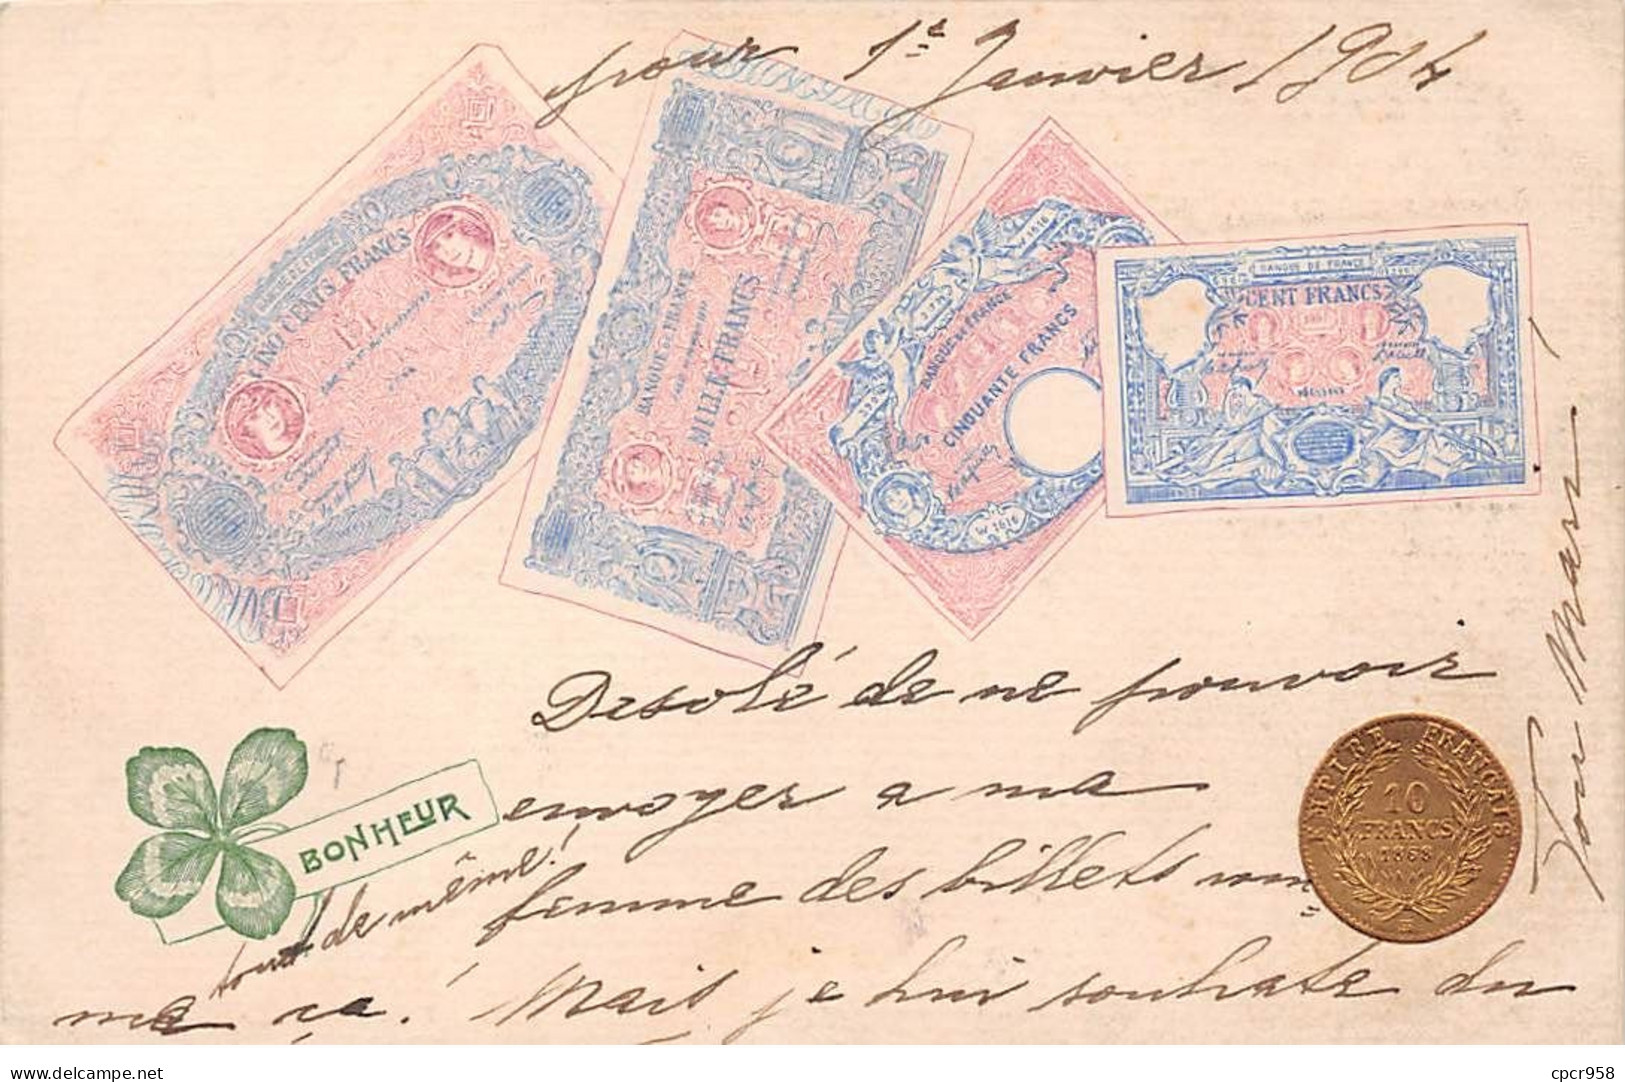 pour 1e Janvier 1904
CINQ CENTS FRANCS
BANQUE DE FRANCE
MILLE FRANCS
W 1616
BANQUE DE FRANCE
CINQUANTE FRANCS
W 1616
BANQUE DE FRANCE
CENT FRANCS
Desolé de ne pouvoir
envoyer a ma
femme des billets com=
me ça! Mais je lui souhate du
BONHEUR
tout de même!
EMPIRE FRANÇAIS
10
FRANCS
1868
Ton Mari
Delcampe.net
cpcr958